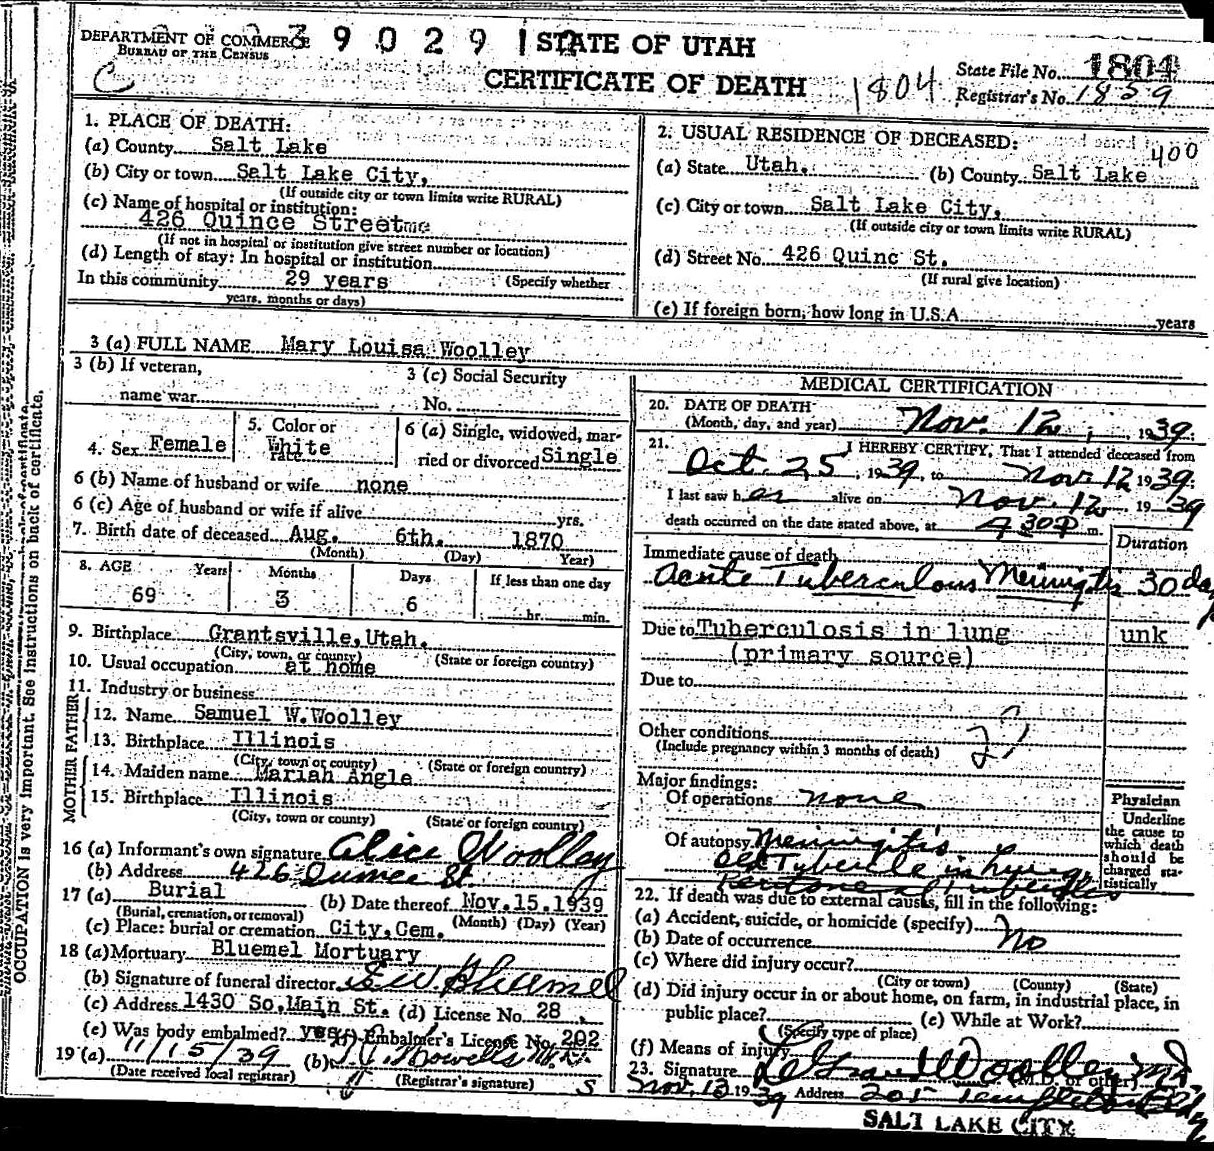 DEPARTMENT OF COMMERCE
BUREAU OF THE CENSUS
3 9 0 2 9 1
STATE OF UTAH
CERTIFICATE OF DEATH
C
1804
State File No. 1804
Registrar's No. 1839
1. PLACE OF DEATH:
(a) County Salt Lake
(b) City or town Salt Lake City,
(If outside city or town limits write RURAL)
(c) Name of hospital or institution:
426 Quince Street
(If not in hospital or institution give street number or location)
(d) Length of stay: In hospital or institution
In this community 29 years (Specify whether
years, months or days)
2. USUAL RESIDENCE OF DECEASED:
400
(a) State Utah. (b) County Salt Lake
(c) City or town Salt Lake City,
(If outside city or town limits write RURAL)
(d) Street No. 426 Quinc St.
(If rural give location)
(e) If foreign born, how long in U.S.A. years
3 (a) FULL NAME Mary Louisa Woolley
3 (b) If veteran,
name war
3 (c) Social Security
No.
4. Sex Female
5. Color or
race White
6 (a) Single, widowed, mar-
ried or divorced Single
6 (b) Name of husband or wife none
6 (c) Age of husband or wife if alive yrs.
7. Birth date of deceased Aug. 6th. 1870
(Month) (Day) Year)
8. AGE Years Months Days If less than one day
69 3 6 hr. min.
9. Birthplace Grantsville,Utah.
(City, town, or county) (State or foreign country)
10. Usual occupation at home
11. Industry or business
FATHER
12. Name Samuel W.Woolley
13. Birthplace Illinois
(City, town or county) (State or foreign country)
MOTHER
14. Maiden name Mariah Angle
15. Birthplace Illinois
(City, town or county) (State or foreign country)
16 (a) Informant's own signature Alice Woolley
(b) Address 426 Quince St.
17 (a) Burial (b) Date thereof Nov.15.1939
(Burial, cremation, or removal) (Month) (Day) (Year)
(c) Place: burial or cremation City,Cem.
18 (a) Mortuary Bluemel Mortuary
(b) Signature of funeral director E.W. Bluemel
(c) Address 1430 So,Main St. (d) License No. 28
(e) Was body embalmed? yes (f) Embalmer's License No. 202
19 (a) 11/15/39 (b)
(Date received local registrar) (Registrar's signature)
S
MEDICAL CERTIFICATION
20. DATE OF DEATH
(Month, day, and year) Nov. 12, 1939
21. I HEREBY CERTIFY, That I attended deceased from
Oct. 25, 1939, to Nov. 12 1939;
I last saw her alive on Nov. 12, 1939
death occurred on the date stated above, at 4 30 P m.
Duration
Immediate cause of death
Acute Tuberculous Meningitis 30 days
Due to Tuberculosis in lung unk
(primary source)
Due to
Other conditions
(Include pregnancy within 3 months of death)
Major findings:
Of operations none
Of autopsy Meningitis
Old Tubercle in lung
Physician
Underline
the cause to
which death
should be
charged sta-
tistically
22. If death was due to external causes, fill in the following:
(a) Accident, suicide, or homicide (specify) No
(b) Date of occurrence
(c) Where did injury occur?
(City or town) (County) (State)
(d) Did injury occur in or about home, on farm, in industrial place, in
public place? (e) While at Work?
(Specify type of place)
(f) Means of injury
23. Signature LeGrand Woolley MD
(M.D. or other)
Nov. 13 1939 Address 205 Templeton Bldg
SALT LAKE CITY
OCCUPATION is very important. See instructions on back of certificate.